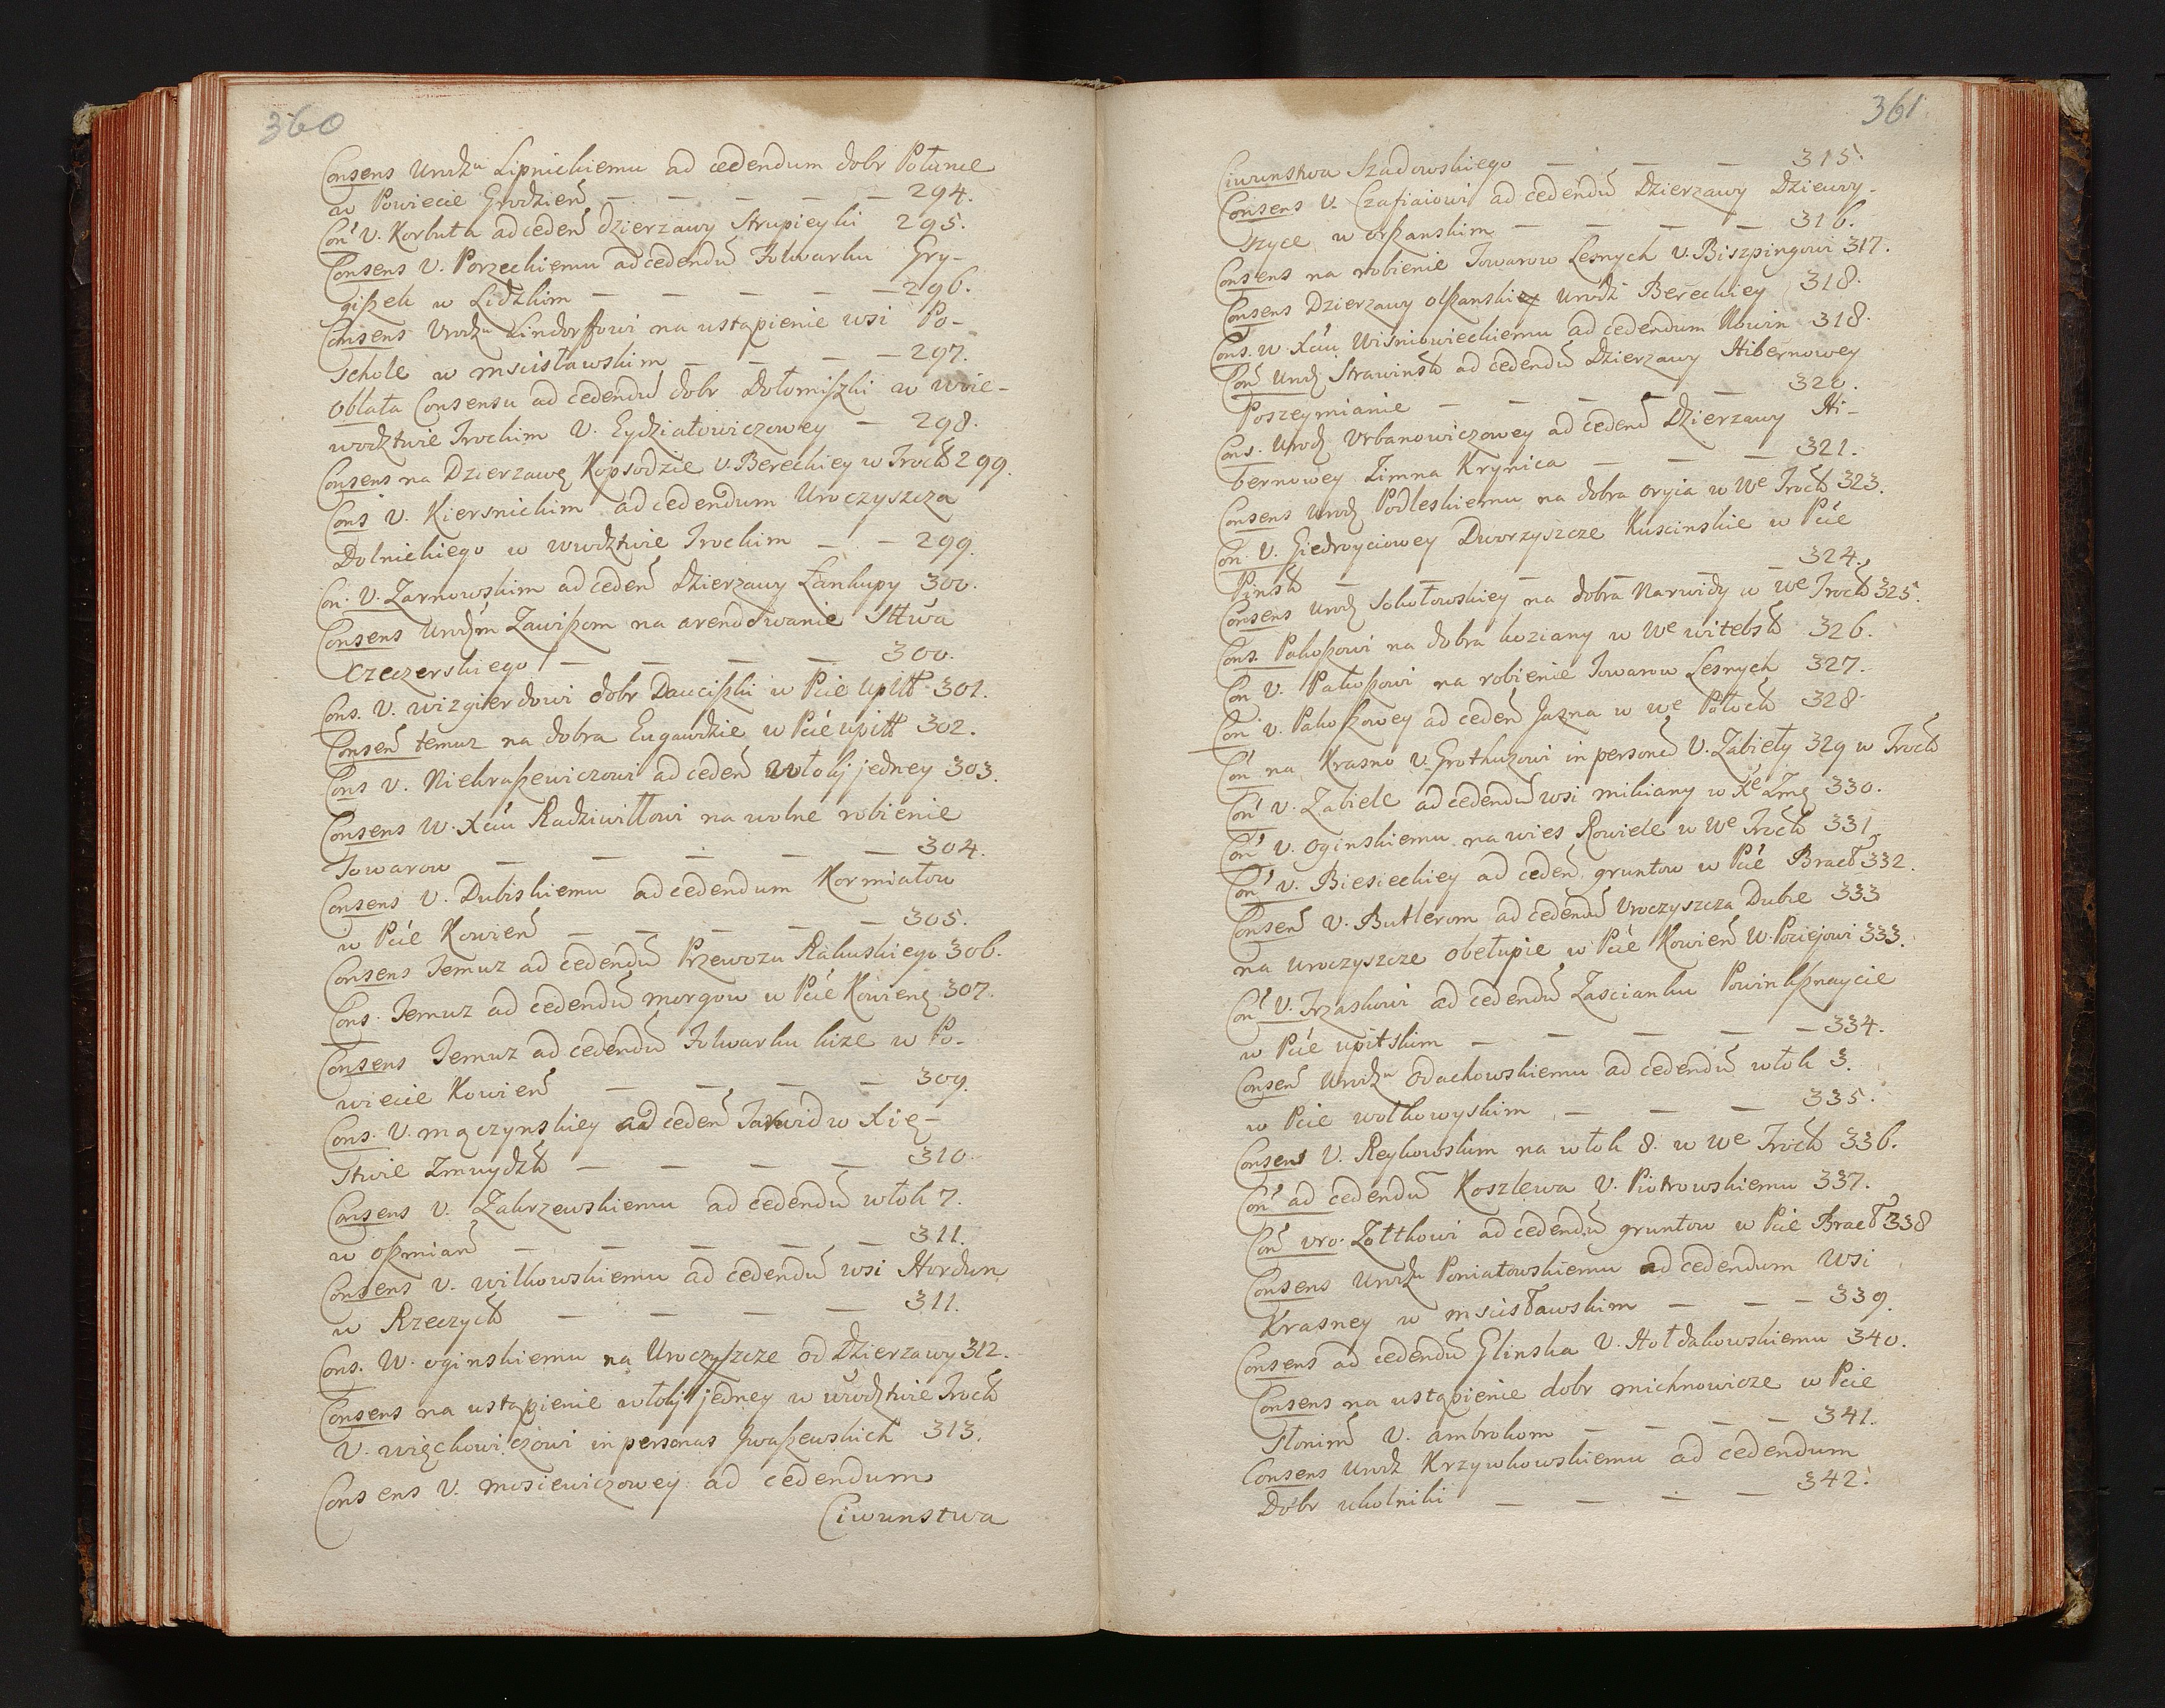 360
Consens Urodzu Lipnickiemu ad cedendum dobr Połunie
w Powiecie Grodzień — — — — — 294.
Con' U. Korbuta ad ceden̄ dzierzawy Strupieyki 295.
Consens U. Porzeckiemu ad cedendū Folwarku Gry-
giszek w Lidzkim — — — — — 296.
Consens Urodzu Lindorffowi na ustąpienie wsi Po-
schole w mscisławskim — — — — 297.
Oblata Consensu ad cedendū dobr Dołomiszki w woie-
wodztwie Trockim U. Eydziatowiczowey — 298.
Consens na Dzierzawę Kopsodzie U. Bereckiey w Trock 299.
Cons U. Kiersnickim ad cedendum Uroczyszcza
Dolnickiego w wwdztwie Trockim — — 299.
Con. U. Zarnowskim ad ceden̄ Dzierzawy Łankupy 300.
Consens Urodzm Zawiszom na arendowanie Sttwa
Czeczerskiego — — — — 300.
Cons. U. wizgierdowi dobr Dauciszki w Pcie Upitt 301.
Consen̄ temuz na dobra Eugawdzie w Pcie upitt 302.
Cons U. Niekraszewiczowi ad ceden̄ włoki jedney 303.
Consens W. Xciu Radziwiłłowi na wolne robienie
Towarow — — — — — 304.
Consens U. Dubiskiemu ad cedendum Kormiałow
w Pcie Kowień — — — — — 305.
Consens Temuz ad cedendū Przewozu Rakuskiego 306.
Cons. Temuz ad cedendū morgow w Pcie Kowieng 307.
Consens Temuz ad cedendū Folwarku kize w Po-
wiecie Kowień — — — — 309.
Cons. U. mączynskiey ad ceden̄ Jarwid w Xię-
stwie Zmuydzk — — — — 310.
Consens U. Zakrzewskiemu ad cedendū włok 7.
w oszmian̄ — — — — — 311.
Consens U. wilkowskiemu ad cedendū wsi Hordun
w Rzeczyck — — — — 311.
Cons. W. oginskiemu na Uroczyszcze od Dzierzawy 312.
Consens na ustąpienie włoki jedney w wwdztwie Trock
U. więckowiczowi in personas Jwaszewskich 313.
Consens U. mosiewiczowey ad cedendum
Ciwunstwa
361
Ciwunstwa Szadowskiego — — — 315.
Consens U. Czafiaiowi ad cedendū Dzierzawy Dziewy-
szyce w orszanskim — — — — 316.
Consens na robienie Towarow Lesnych U. Biszpingowi 317.
Consens Dzierzawy olszanskiey Urodz Bereckiey 318.
Cons. W. Xciu Wisniowieckiemu ad cedendum Nowin 318.
Con̄ Urodz Strawinsk ad cedendū Dzierzawy Hibernowey
Poszeymianie — — — — — 320.
Cons. Urodz Urbanowiczowey ad ceden̄ Dzierzawy Hi-
bernowey Zimna Krynica — — — 321.
Consens Urodz Podleskiemu na dobra oryia w We Trock 323.
Con. U. Giedroyciowey Dworzyszcze Kuscinskie w Pcie
Pinsk — — — — — 324.
Consens Urodz Sokołowskiey na dobra Narwidy w we Trock 325.
Cons. Pakoszowi na dobra koziany w We witebsk 326.
Con U. Pakoszowi na robienie Towarow Lesnych 327.
Con U. Pakoszowey ad ceden̄ Jazna w we Połock 328.
Con na Krasno U. Grothuzowi in personā U. Zabieły 329 w Trock
Con' U. Zabiele ad cedendū wsi mikiany w Xe Zmg 330.
Con' U. Oginskiemu na wies Rowiele w We Trock 331.
Con' U. Biesieckiey ad ceden̄ gruntow w Pcie Bracł 332.
Consen̄ U. Butlerom ad cedendū Uroczyszcza Dubie 333
na uroczyszcze obełupie w Pcie Kowień W. Pociejowi 333.
Con' U. Trzaskowi ad cedendū Zascianku Powinksznaycie
w Pcie upitskim — — — — — 334.
Consen̄ Urodzu Odachowskiemu ad cedendū włok 3.
w Pcie wołkowyskim — — — 335.
Consens U. Reykowskim na włok 8. w We Trock 336.
Con' ad cedendū Koszlewa U. Piotrowskiemu 337.
Con̄ Uro. Zołtkowi ad cedendū gruntow w Pcie Bracł 338
Consens Urodzu Poniatowskiemu ad cedendum Wsi
Krasney w mscisławskim — — — 339.
Consens ad cedendū Glinska U. Hołdakowskiemu 340.
Consens na ustąpienie dobr michnowicze w Pcie
Słonim̄ U. ambrokom — — — — 341.
Consens Urodz Krzywkowskiemu ad cedendum
Dobr ukolniki — — — — 342.